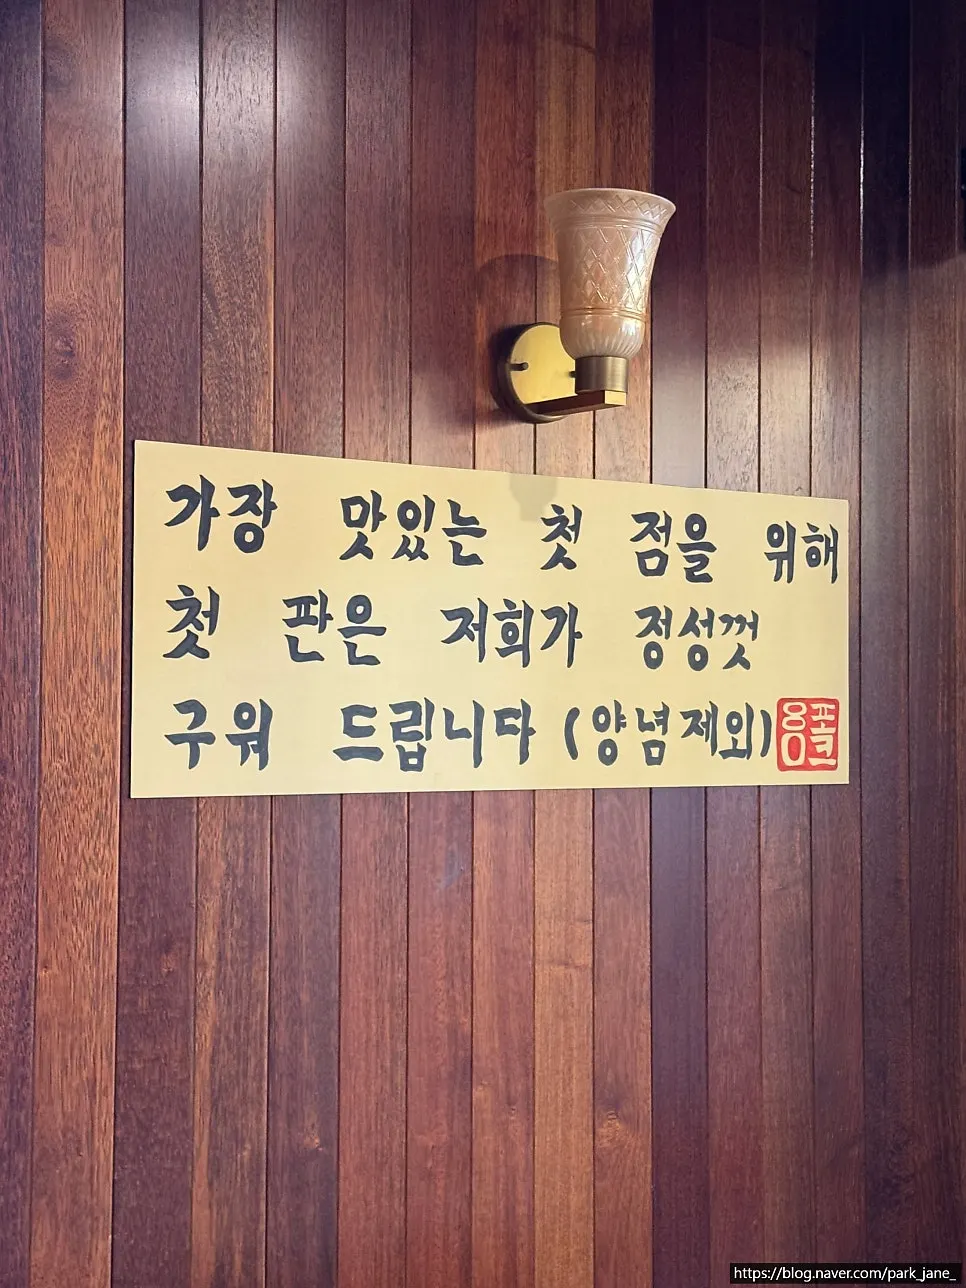 가장 맛있는 첫 점을 위해
첫 판은 저희가 정성껏
구워 드립니다 (양념제외)
용포크
https://blog.naver.com/park_jane_